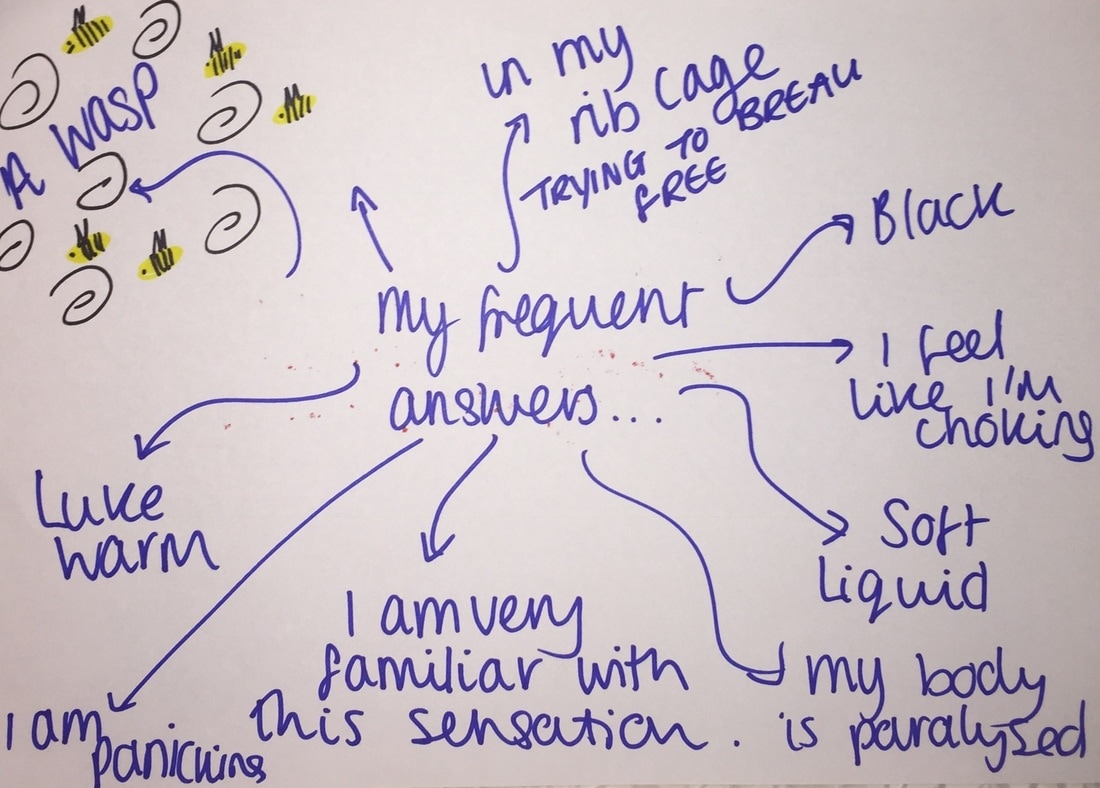 A wasp
in my
rib cage
TRYING TO BREAK
FREE
Black
my frequent
answers...
I feel
like I'm
choking
Luke
warm
Soft
Liquid
I am very
familiar with
this sensation.
my body
is paralysed
I am
panicking